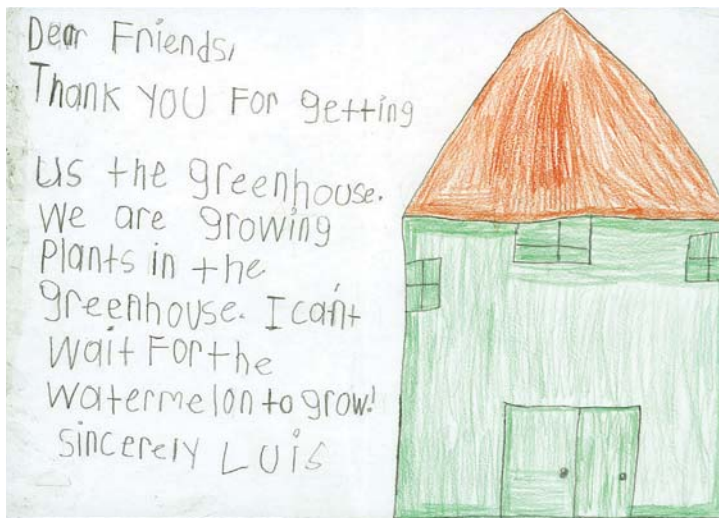 Dear Friends,
Thank YOU For getting
Us the greenhouse.
We are growing
Plants in the
greenhouse. I can't
Wait For the
Watermelon to grow!
Sincerely LUis